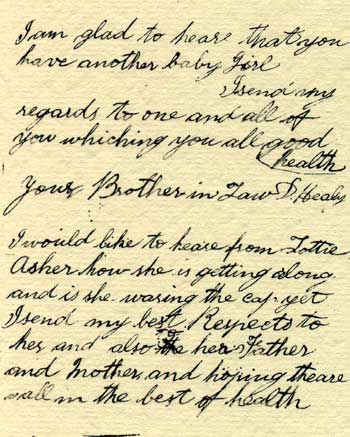 I am glad to heare that you
have another baby Girl
I send my
regards to one and all of
you whiching you all good
health
Your Brother in Law D. Healy
I would like to heare from Lottie
Asher how she is getting along
and is she waring the cap yet
I send my best Respects to
her and also her Father
and Mother and hoping theare
all in the best of health